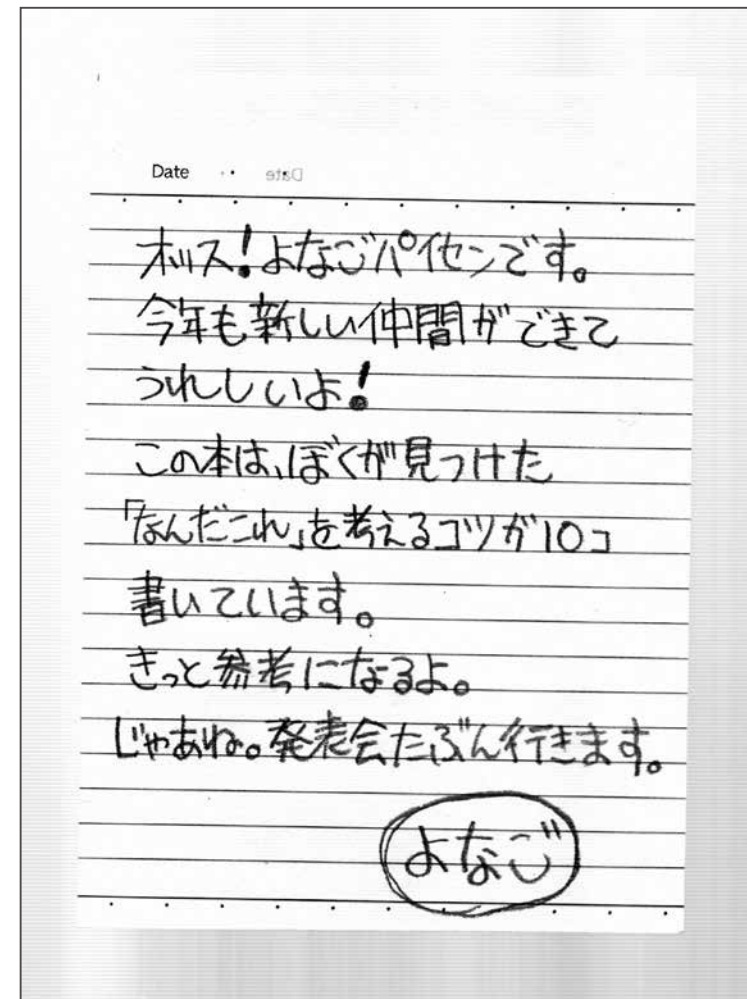 Date
オッス!よなごパイセンです。
今年も新しい仲間ができて
うれしいよ!
この本は、ぼくが見つけた
「なんだこれ」を考えるコツが10コ
書いています。
きっと参考になるよ。
じゃあね。発表会たぶん行きます。
よなご